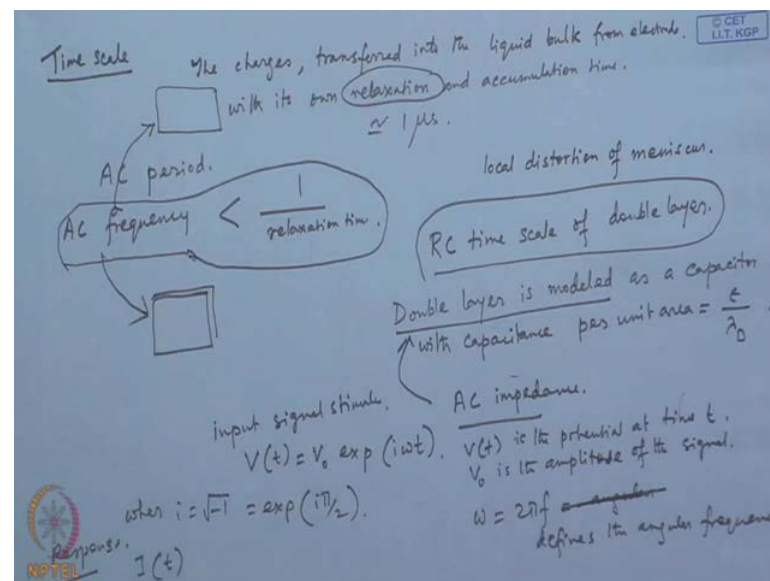 Time scale
The charges, transferred into the liquid bulk from electrode.
with its own relaxation and accumulation time.
≃ 1 μs.
© CET
I.I.T. KGP
AC period.
AC frequency < 1 / relaxation time.
local distortion of meniscus.
RC time scale of double layer.
Double layer is modeled as a capacitor
with capacitance per unit area = ε / λD
AC impedance.
input signal stimule.
V(t) = V₀ exp (iωt).
V(t) is the potential at time t.
V₀ is the amplitude of the signal.
when i = √-1 = exp (iπ/2).
ω = 2πf = angular
defines the angular frequen
Response.
I(t)
NPTEL